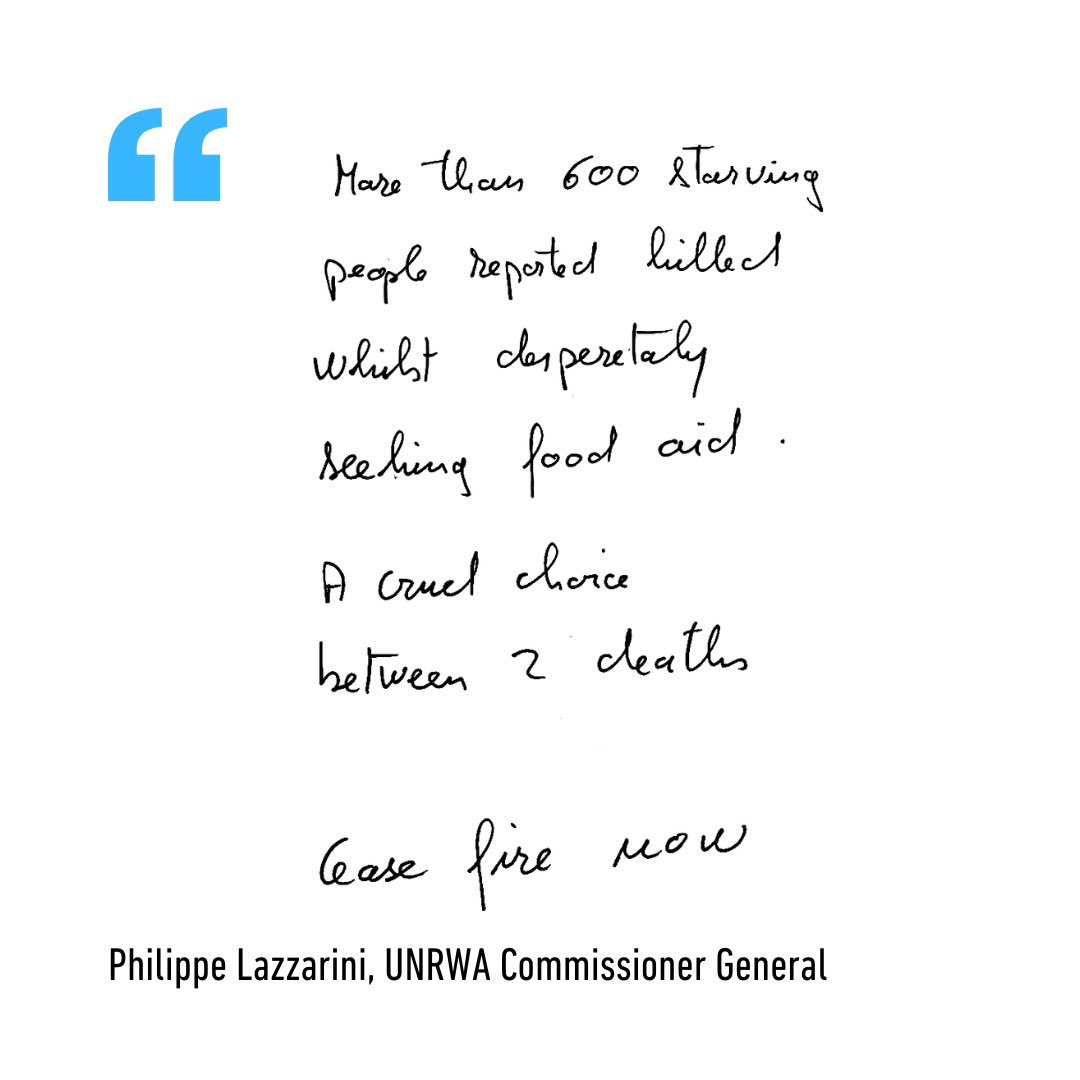 “
More than 600 starving
people reported killed
whilst desperetaly
seeking food aid .
A cruel choice
between 2 deaths
Cease fire now
Philippe Lazzarini, UNRWA Commissioner General